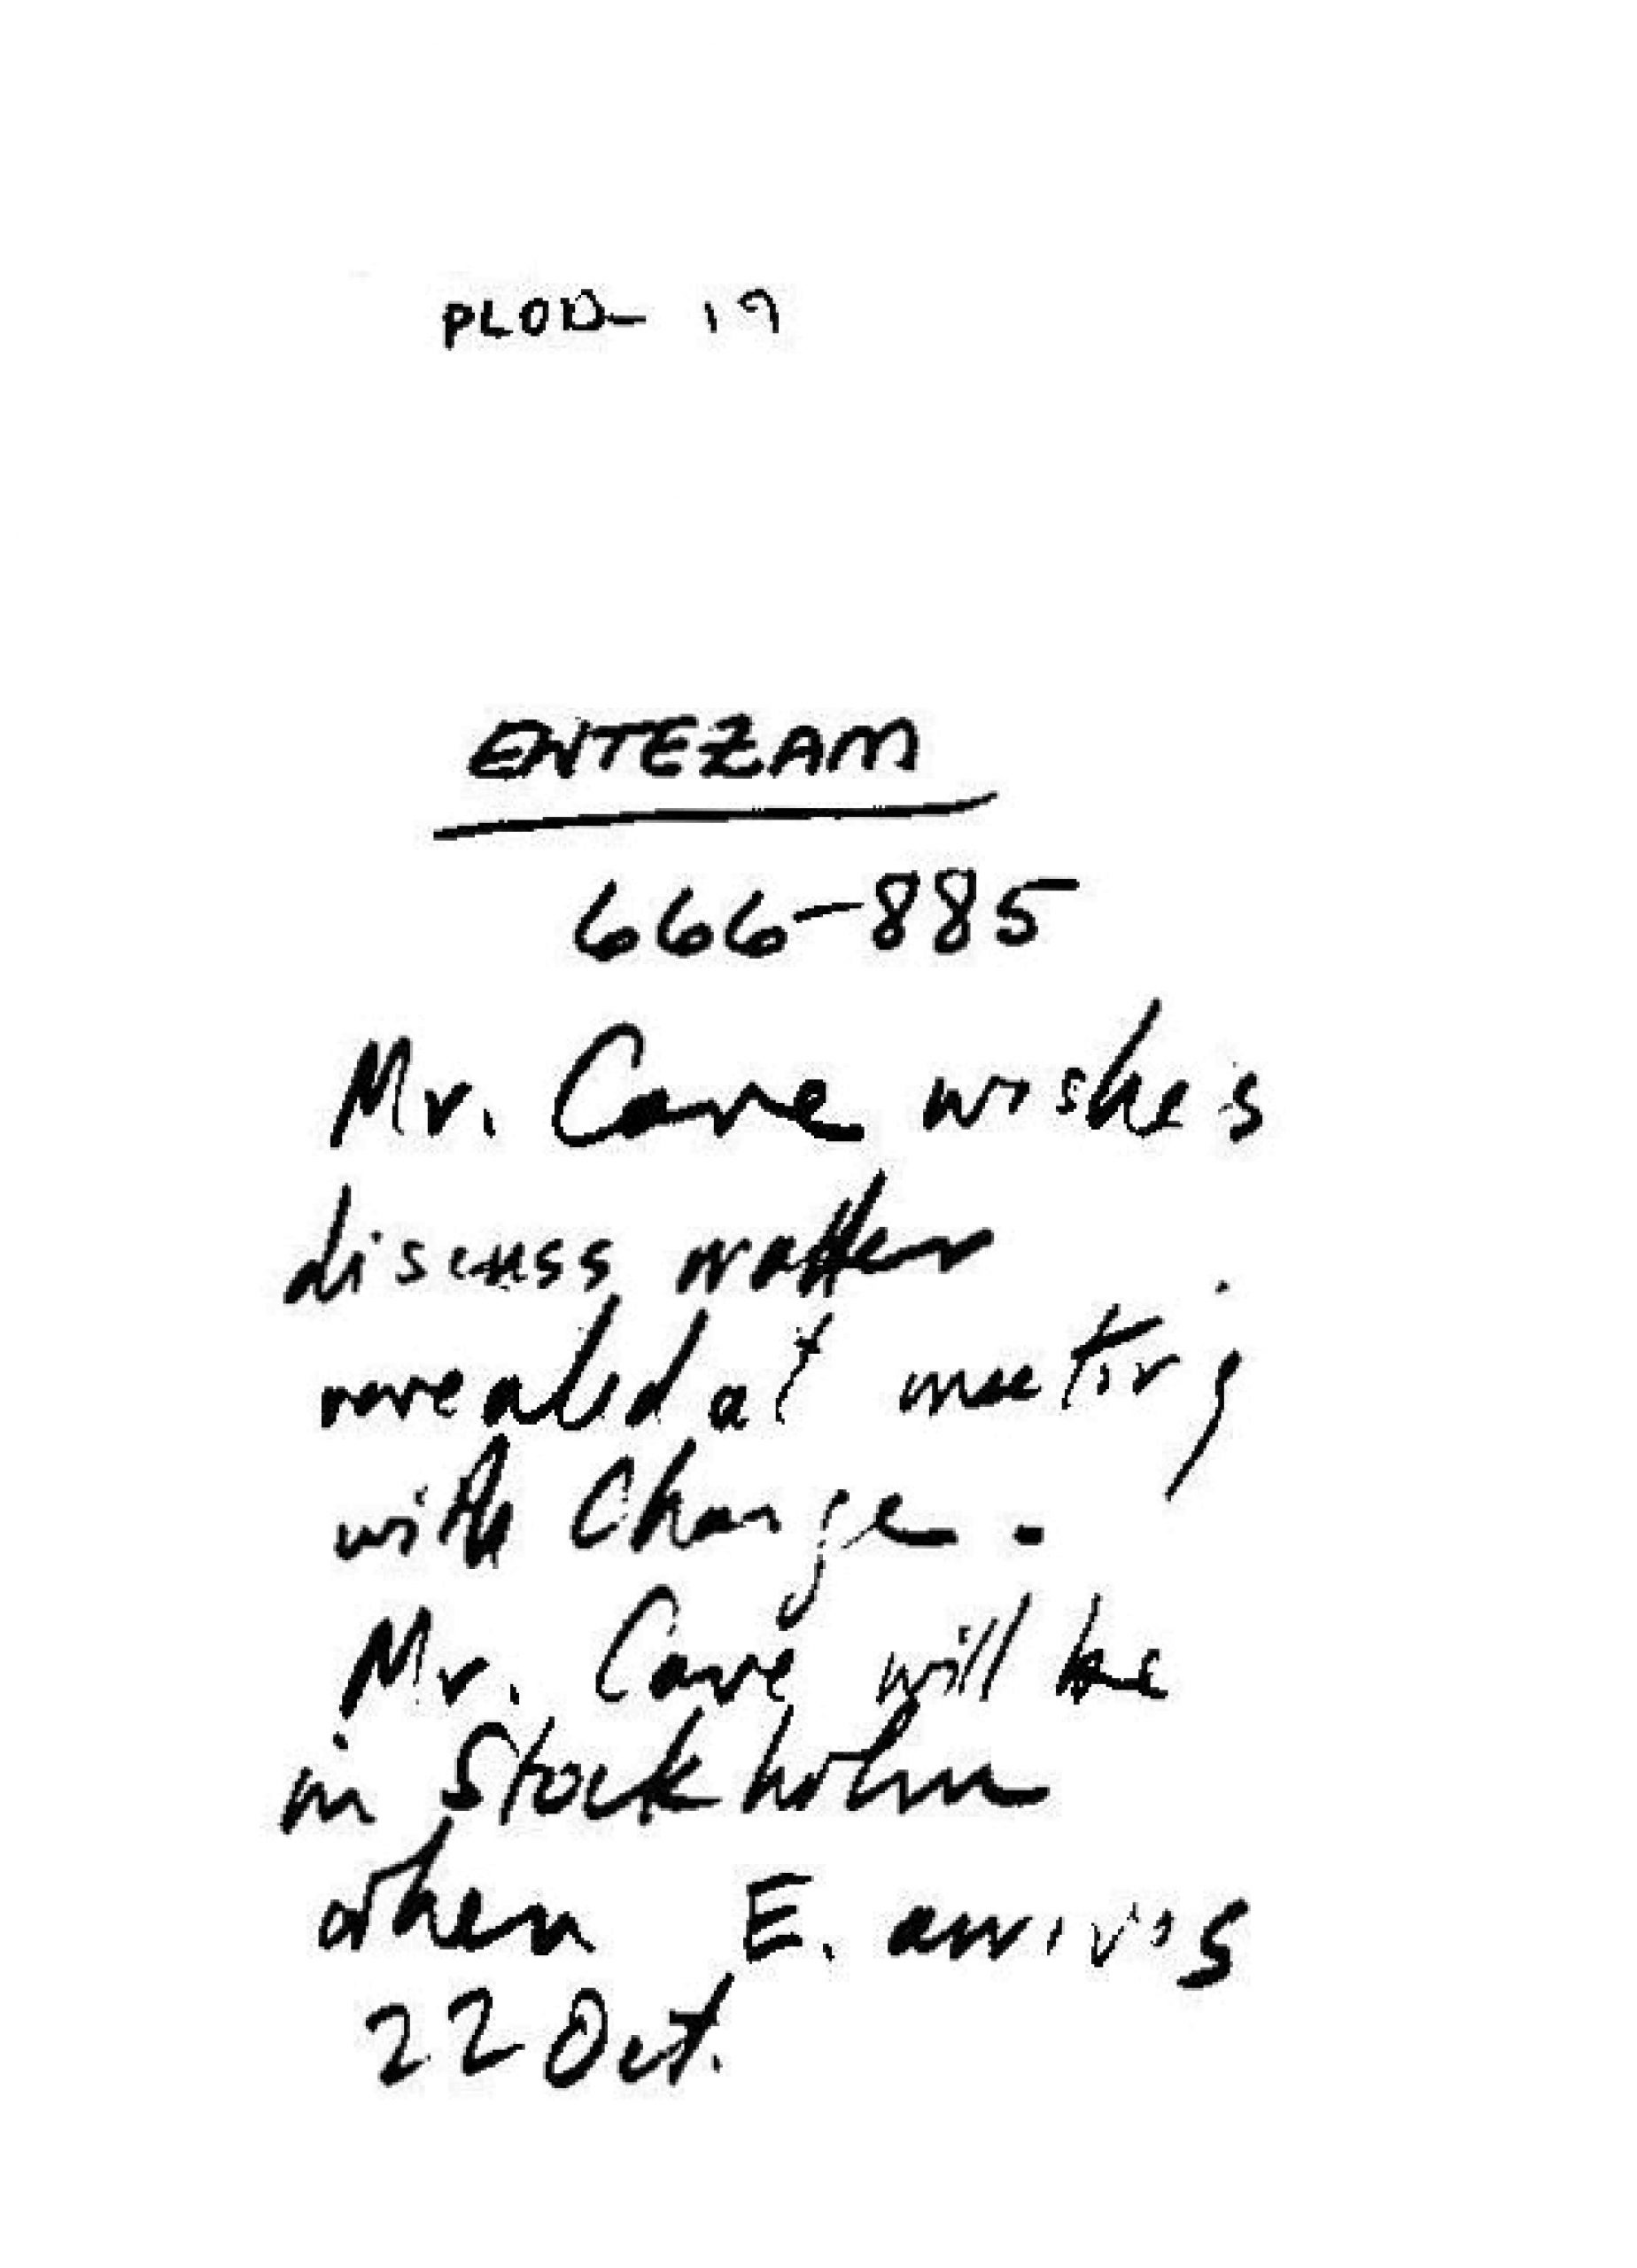 PLOD- 19
ENTEZAM
666-885
Mr. Cave wishes
discuss matter
revealed at meeting
with Charge.
Mr. Cave will be
in Stockholm
when E. arrives
22 Oct.